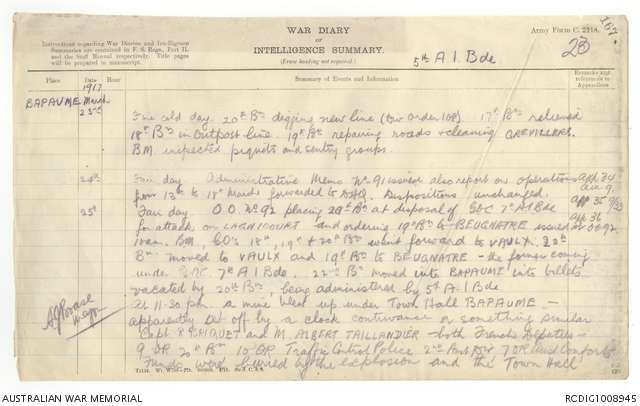 167.
WAR DIARY
or
INTELLIGENCE SUMMARY.
(Erase heading not required.)
Army Form C. 2118.
23
5th A I Bde
Instructions regarding War Diaries and Intelligence
Summaries are contained in F. S. Regs., Part II.
and the Staff Manual respectively. Title pages
will be prepared in manuscript.
Place
Date
Hour
Summary of Events and Information
Remarks and
references to
Appendices
1917
BAPAUME March
23rd Fine cold day. 20th Bn digging new line (our order 108). 17th Bn relieved
18th Bn in Outpost line. 19th Bn repairing roads & cleaning GREVILLERS.
BM. inspected piquets and sentry groups.
24th Fair day. Administrative Memo No 91 issued also report on operations
from 13th to 18th March forwarded to DHQ. Dispositions unchanged.
App 34
25th Fair day. O.O. No 92 placing 20th Bn at disposal of GOC 7th A I Bde
App 35
for attack on LAGNICOURT and ordering 19th Bn to BEUGNATRE issued
App 36
OO 92
BM, CO's 18th, 19th & 20th Bns went forward to VAULX. 20th
Bn moved to VAULX and 19th Bn to BEUGNATRE - the former coming
under GOC 7th A I Bde. 22nd Bn moved into BAPAUME into billets
vacated by 20th Bn, being administered by 5th A I Bde
At 11-30 pm a mine blew up under Town Hall BAPAUME —
apparently set off by a clock contrivance or something similar
Capt and M. ALBERT TAILLANDIER - both French Deputies -
9 OR 20th Bn 10 OR Traffic Control Police 2nd 7 OR Comforts
Funds were buried by the explosion and the Town Hall
Major
AUSTRALIAN WAR MEMORIAL
RCDIG1008945